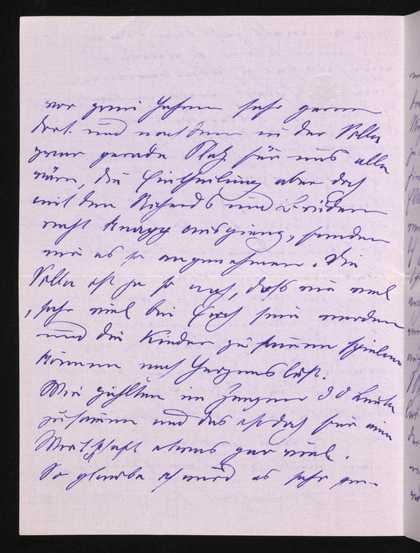 vor zwei Jahren sehr gerne
dort und nachdem in der Villa
zwar gerade Platz für uns alle
wäre, die Eintheilung aber doch
mit den Richards und Brüdern
recht knapp ausgienge, fanden
wir es so angenehmer. Die
Villa ist ja so nah, daß wir viel,
sehr viel bei Euch sein werden
und die Kinder zusammen spielen
können nach Herzenslust.
Wir zählten im Ganzen 30 Leute
zusammen und das ist doch für eine
Wirthschaft etwas gar viel.
So glaube ich wird es sehr